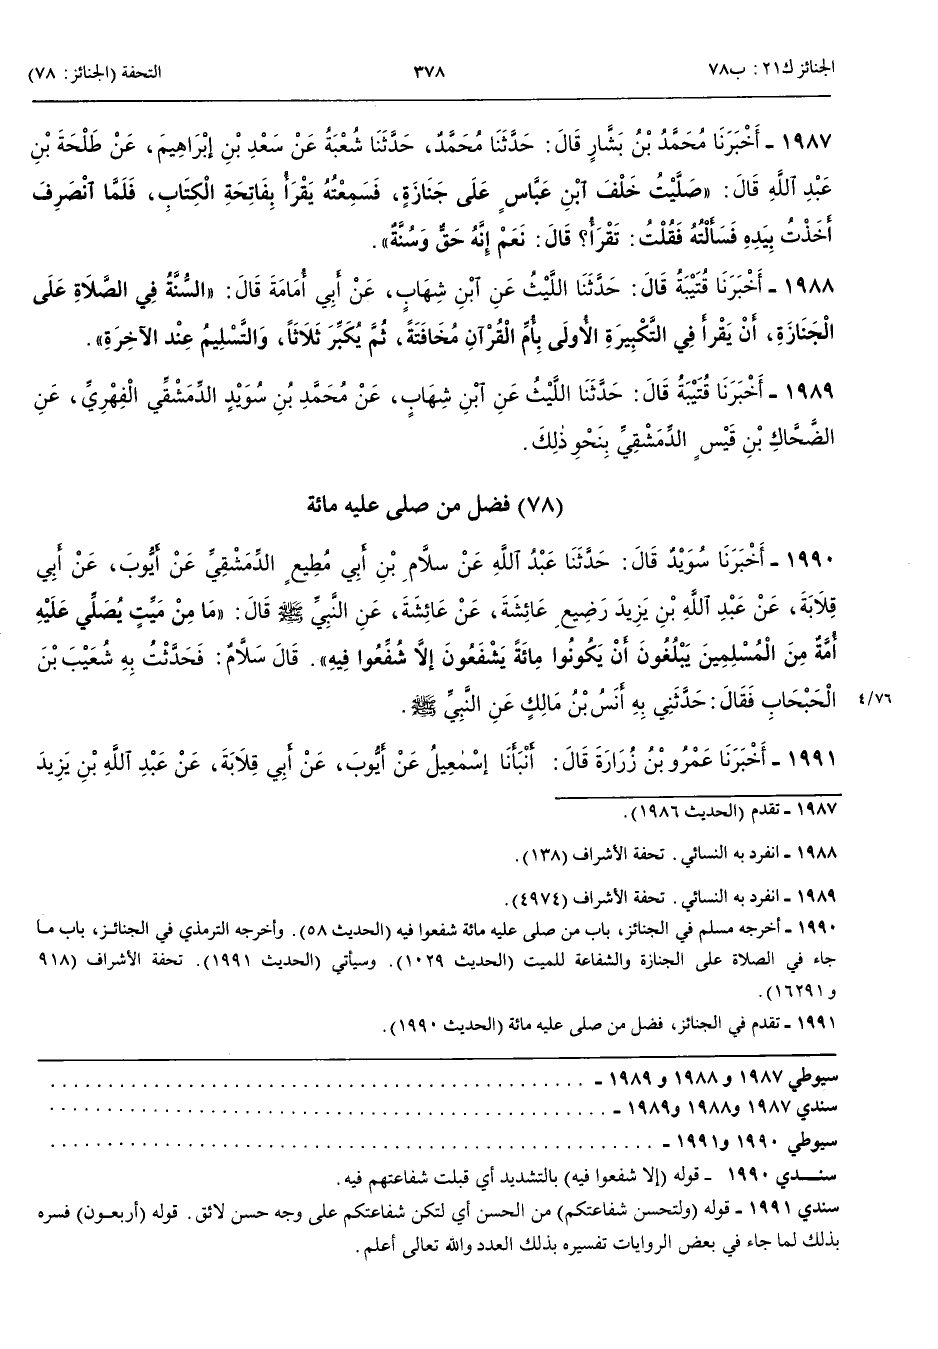 الجنائز ك٢١: ب٧٨
٣٧٨
التحفة (الجنائز: ٧٨)
١٩٨٧ ـ أَخْبَرَنَا مُحَمَّدُ بْنُ بَشَّارٍ قَالَ: حَدَّثَنَا مُحَمَّدٌ، حَدَّثَنَا شُعْبَةُ عَنْ سَعْدِ بْنِ إِبْرَاهِيمَ، عَنْ طَلْحَةَ بْنِ
عَبْدِ ٱللَّهِ قَالَ: «صَلَّيْتُ خَلْفَ ٱبْنِ عَبَّاسٍ عَلَى جَنَازَةٍ، فَسَمِعْتُهُ يَقْرَأُ بِفَاتِحَةِ الْكِتَابِ، فَلَمَّا ٱنْصَرَفَ
أَخَذْتُ بِيَدِهِ فَسَأَلْتُهُ فَقُلْتُ: تَقْرَأُ؟ قَالَ: نَعَمْ إِنَّهُ حَقٌّ وَسُنَّةٌ».
١٩٨٨ ـ أَخْبَرَنَا قُتَيْبَةُ قَالَ: حَدَّثَنَا اللَّيْثُ عَنِ ٱبْنِ شِهَابٍ، عَنْ أَبِي أُمَامَةَ قَالَ: «السُّنَّةُ فِي الصَّلَاةِ عَلَى
الْجَنَازَةِ، أَنْ يَقْرَأَ فِي التَّكْبِيرَةِ الْأُولَى بِأُمِّ الْقُرْآنِ مُخَافَتَةً، ثُمَّ يُكَبِّرَ ثَلَاثَاً، وَالتَّسْلِيمُ عِنْدَ الآخِرَةِ».
١٩٨٩ ـ أَخْبَرَنَا قُتَيْبَةُ قَالَ: حَدَّثَنَا اللَّيْثُ عَنِ ٱبْنِ شِهَابٍ، عَنْ مُحَمَّدِ بْنِ سُوَيْدٍ الدِّمَشْقِّي الْفِهْرِيِّ، عَنِ
الضَّحَّاكِ بْنِ قَيْسٍ الدِّمَشْقِيِّ بِنَحْوِ ذٰلِكَ.
(٧٨) فضل من صلى عليه مائة
١٩٩٠ ـ أَخْبَرَنَا سُوَيْدٌ قَالَ: حَدَّثَنَا عَبْدُ ٱللَّهِ عَنْ سلَّامِ بْنِ أَبِي مُطِيعٍ الدِّمَشْقِيِّ عَنْ أَيُّوبَ، عَنْ أَبِي
قِلَابَةَ، عَنْ عَبْدِ ٱللَّهِ بْنِ يَزِيدَ رَضِيعِ عَائِشَةَ، عَنْ عَائِشَةَ، عَنِ النَّبِيِّ ﷺ قَالَ: «مَا مِنْ مَيِّتٍ يُصَلِّي عَلَيْهِ
أُمَّةٌ مِنَ الْمُسْلِمِينَ يَبْلُغُونَ أَنْ يَكُونُوا مِائَةً يَشْفَعُونَ إلَّا شُفِّعُوا فِيهِ». قَالَ سَلَّامٌ: فَحَدَّثْتُ بِهِ شُعَيْبَ بْنَ
الْحَبْحَابِ فَقَالَ: حَدَّثَنِي بِهِ أَنَسُ بْنُ مَالِكٍ عَنِ النَّبِيِّ ﷺ.
٤/٧٦
١٩٩١ ـ أَخْبَرَنَا عَمْرُو بْنُ زُرَارَةَ قَالَ: أَنْبَأَنَا إِسْمٰعِيلُ عَنْ أَيُّوبَ، عَنْ أَبِي قِلَابَةَ، عَنْ عَبْدِ ٱللَّهِ بْنِ يَزِيدَ
١٩٨٧ ـ تقدم (الحديث ١٩٨٦).
١٩٨٨ ـ انفرد به النسائي. تحفة الأشراف (١٣٨).
١٩٨٩ ـ انفرد به النسائي. تحفة الأشراف (٤٩٧٤).
١٩٩٠ ـ أخرجه مسلم في الجنائز، باب من صلى عليه مائة شفعوا فيه (الحديث ٥٨). وأخرجه الترمذي في الجنائز، باب ما
جاء في الصلاة على الجنازة والشفاعة للميت (الحديث ١٠٢٩). وسيأتي (الحديث ١٩٩١). تحفة الأشراف (٩١٨
و ١٦٢٩١).
١٩٩١ ـ تقدم في الجنائز، فضل من صلى عليه مائة (الحديث ١٩٩٠).
سيوطي ١٩٨٧ و ١٩٨٨ و ١٩٨٩ ـ . . . . . . . . . . . . . . . . . . . . . . . . . . . . . . . . . . . . . . . .
سندي ١٩٨٧ و١٩٨٨ و١٩٨٩ ـ . . . . . . . . . . . . . . . . . . . . . . . . . . . . . . . . . . . . . . . .
سيوطي ١٩٩٠ و١٩٩١ ـ . . . . . . . . . . . . . . . . . . . . . . . . . . . . . . . . . . . . . . . . . . .
سنـدي ١٩٩٠ ـ قوله (إلا شفعوا فيه) بالتشديد أي قبلت شفاعتهم فيه.
سندي ١٩٩١ ـ قوله (ولتحسن شفاعتكم) من الحسن أي لتكن شفاعتكم على وجه حسن لائق. قوله (أربعـون) فسره
بذلك لما جاء في بعض الروايات تفسيره بذلك العدد والله تعالى أعلم.